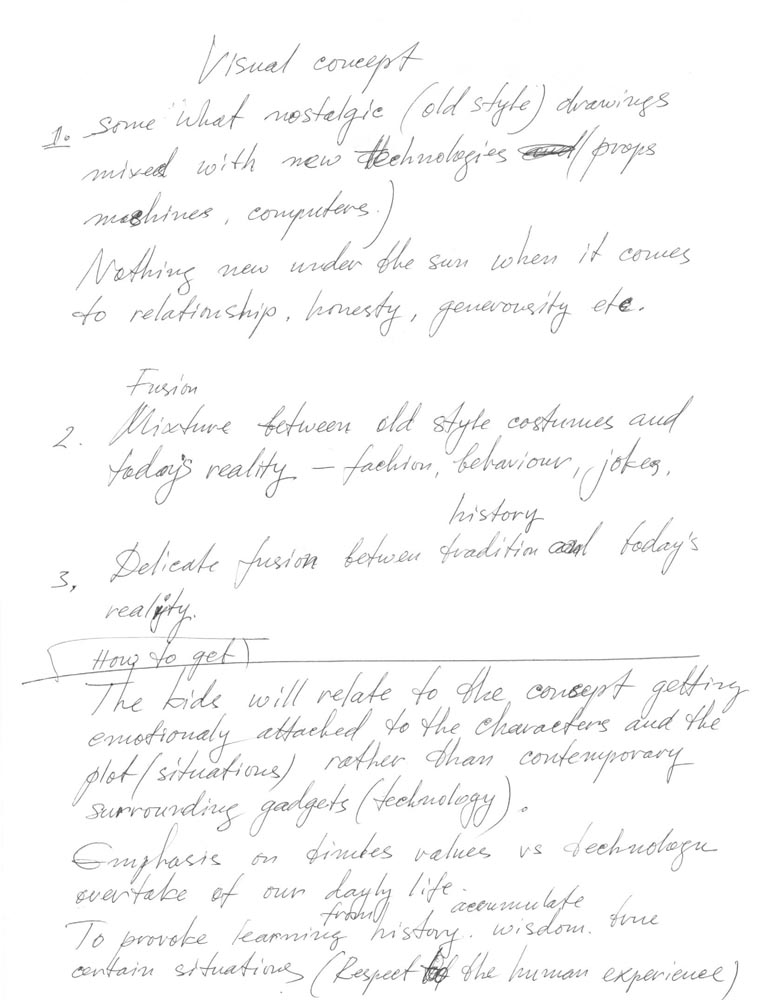 Visual concept
1. some what nostalgic (old style) drawings
mixed with new technologies / props
mashines, computers.)
Nothing new under the sun when it comes
to relationship, honesty, generousity etc.
Fusion
2. Mixture between old style costumes and
today's reality — fachion, behaviour, jokes,
history
3, Delicate fusion betwen tradition and today's
reality.
How to get
The kids will relate to the consept getting
emotionaly attached to the characters and the
plot (situations) rather than contemporary
surrounding gadgets (technology).
Emphasis on values vs technology
overtake of our dayly life.
from accumulate
To provoke learning history. wisdom. true
certain situations (Respect of the human experience)